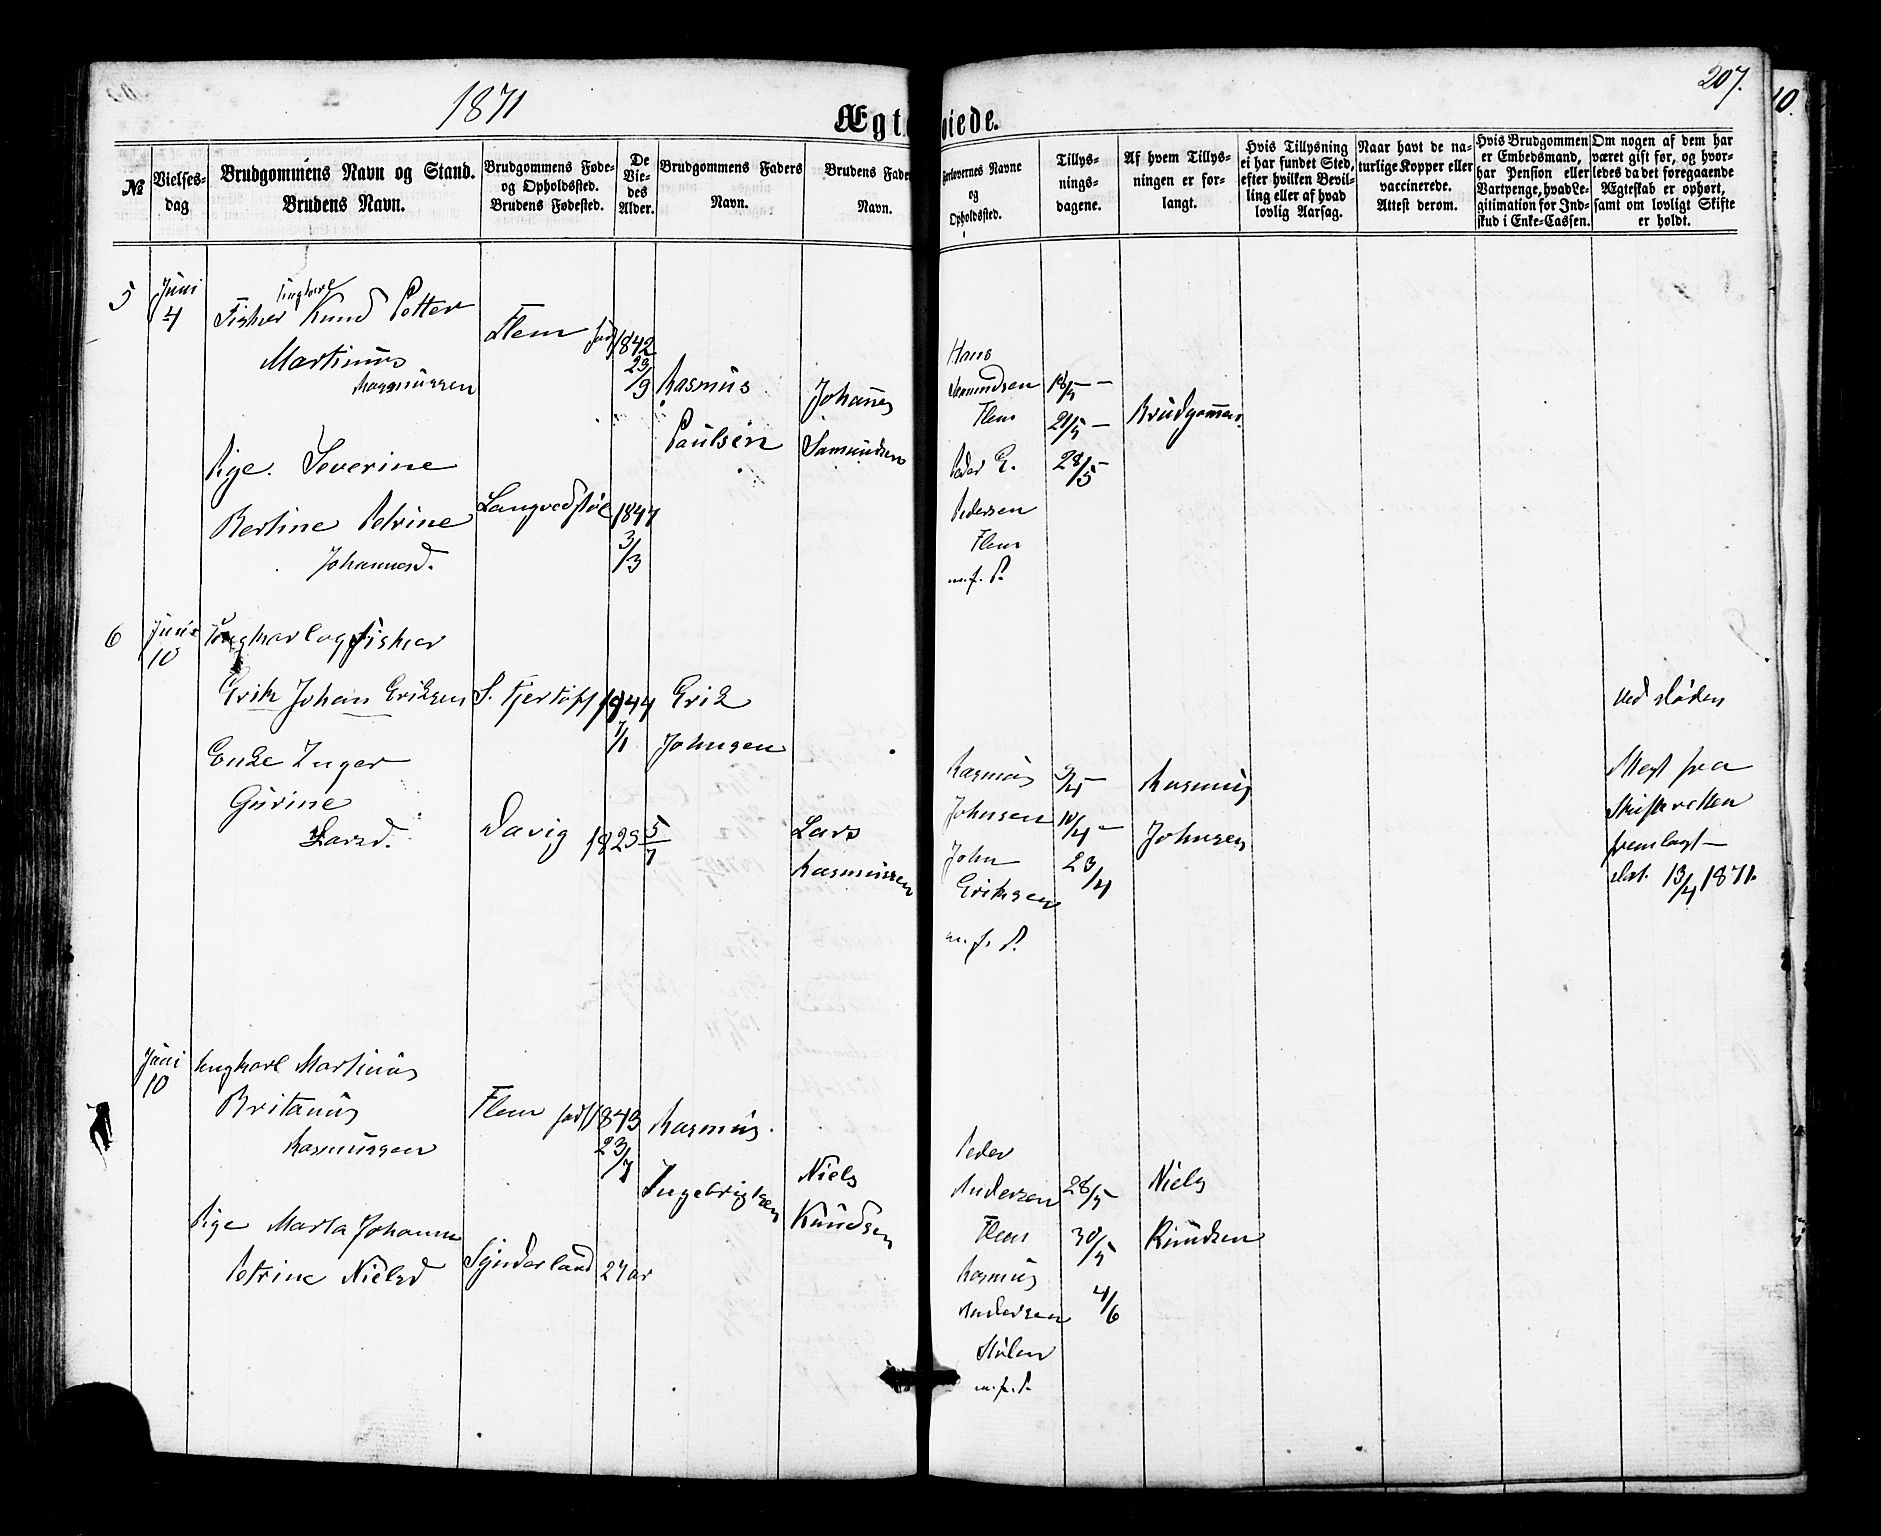 1871
207.
10.
Ægt viede.
№
Vielses-
dag
Brudgommens Navn og Stand.
Brudens Navn.
Brudgommens Føde-
og Opholdssted.
Brudens Fødested.
De
Vie-
des
Alder.
Brudgommens Faders
Navn.
Brudens Fade
Navn.
Forlovernes Navne
og
Opholdssted.
Tillys-
nings-
dagene.
Af hvem Tillys-
ningen er for-
langt.
Hvis Tillysning
ei har fundet Sted,
efter hvilken Bevil-
ling eller af hvad
lovlig Aarsag.
Naar havt de na-
turlige Kopper eller
vaccinerede.
Attest derom.
Hvis Brudgommen
er Embedsmand,
har Pension eller
Vartpenge, hvad Le-
gitimation for Ind-
skud i Enke-Cassen.
Om nogen af dem har
været gift før, og hvor-
ledes da det foregaaende
Ægteskab er ophørt,
samt om lovligt Skifte
er holdt.
5
Juni
4
Ungkarl
Fisker Knud Petter
Martinus
Rasmussen
Flem født
1842
23/9
Rasmus
Paulsen
Johanes
Samundsen
Pige. Severine
Bertine Petrine
Johannesd.
Langvedstøl
1847
3/3
Hans
Samundsen
Flem
Peder E.
Pedersen
Flem
m. f. P.
18/5 —
21/5 —
28/5 —
Brudgommen.
6
Juni
10
Ungkarl og Fisker
Erik Johan Eriksen
S. Fjertoft
1844
7/1
Erik
Johnsen
Enke Inger
Gurine
Larsd.
Davig
1825 5/7
Lars
Rasmussen
Rasmus
Johnsen
John
Eriksen
m. f. P.
9/4 —
10/4 —
23/4
Rasmus
Johnsen
ved Døden
Attest fra
Skifteretten
fremlagt —
dat. 13/4 1871.
Juni
10
Ungkarl Martinus
Britanus
Rasmussen
Flem født
1843
23/7
Rasmus
Ingebrigtsen
Niels
Knudsen
Pige Marta Johanne
Petrine Nielsd
Synderland
24 ar
Peder
Andersen
Flem
Rasmus
Andersen
Stølen
m. f. P.
28/5 —
30/5
4/6
Niels
Knudsen